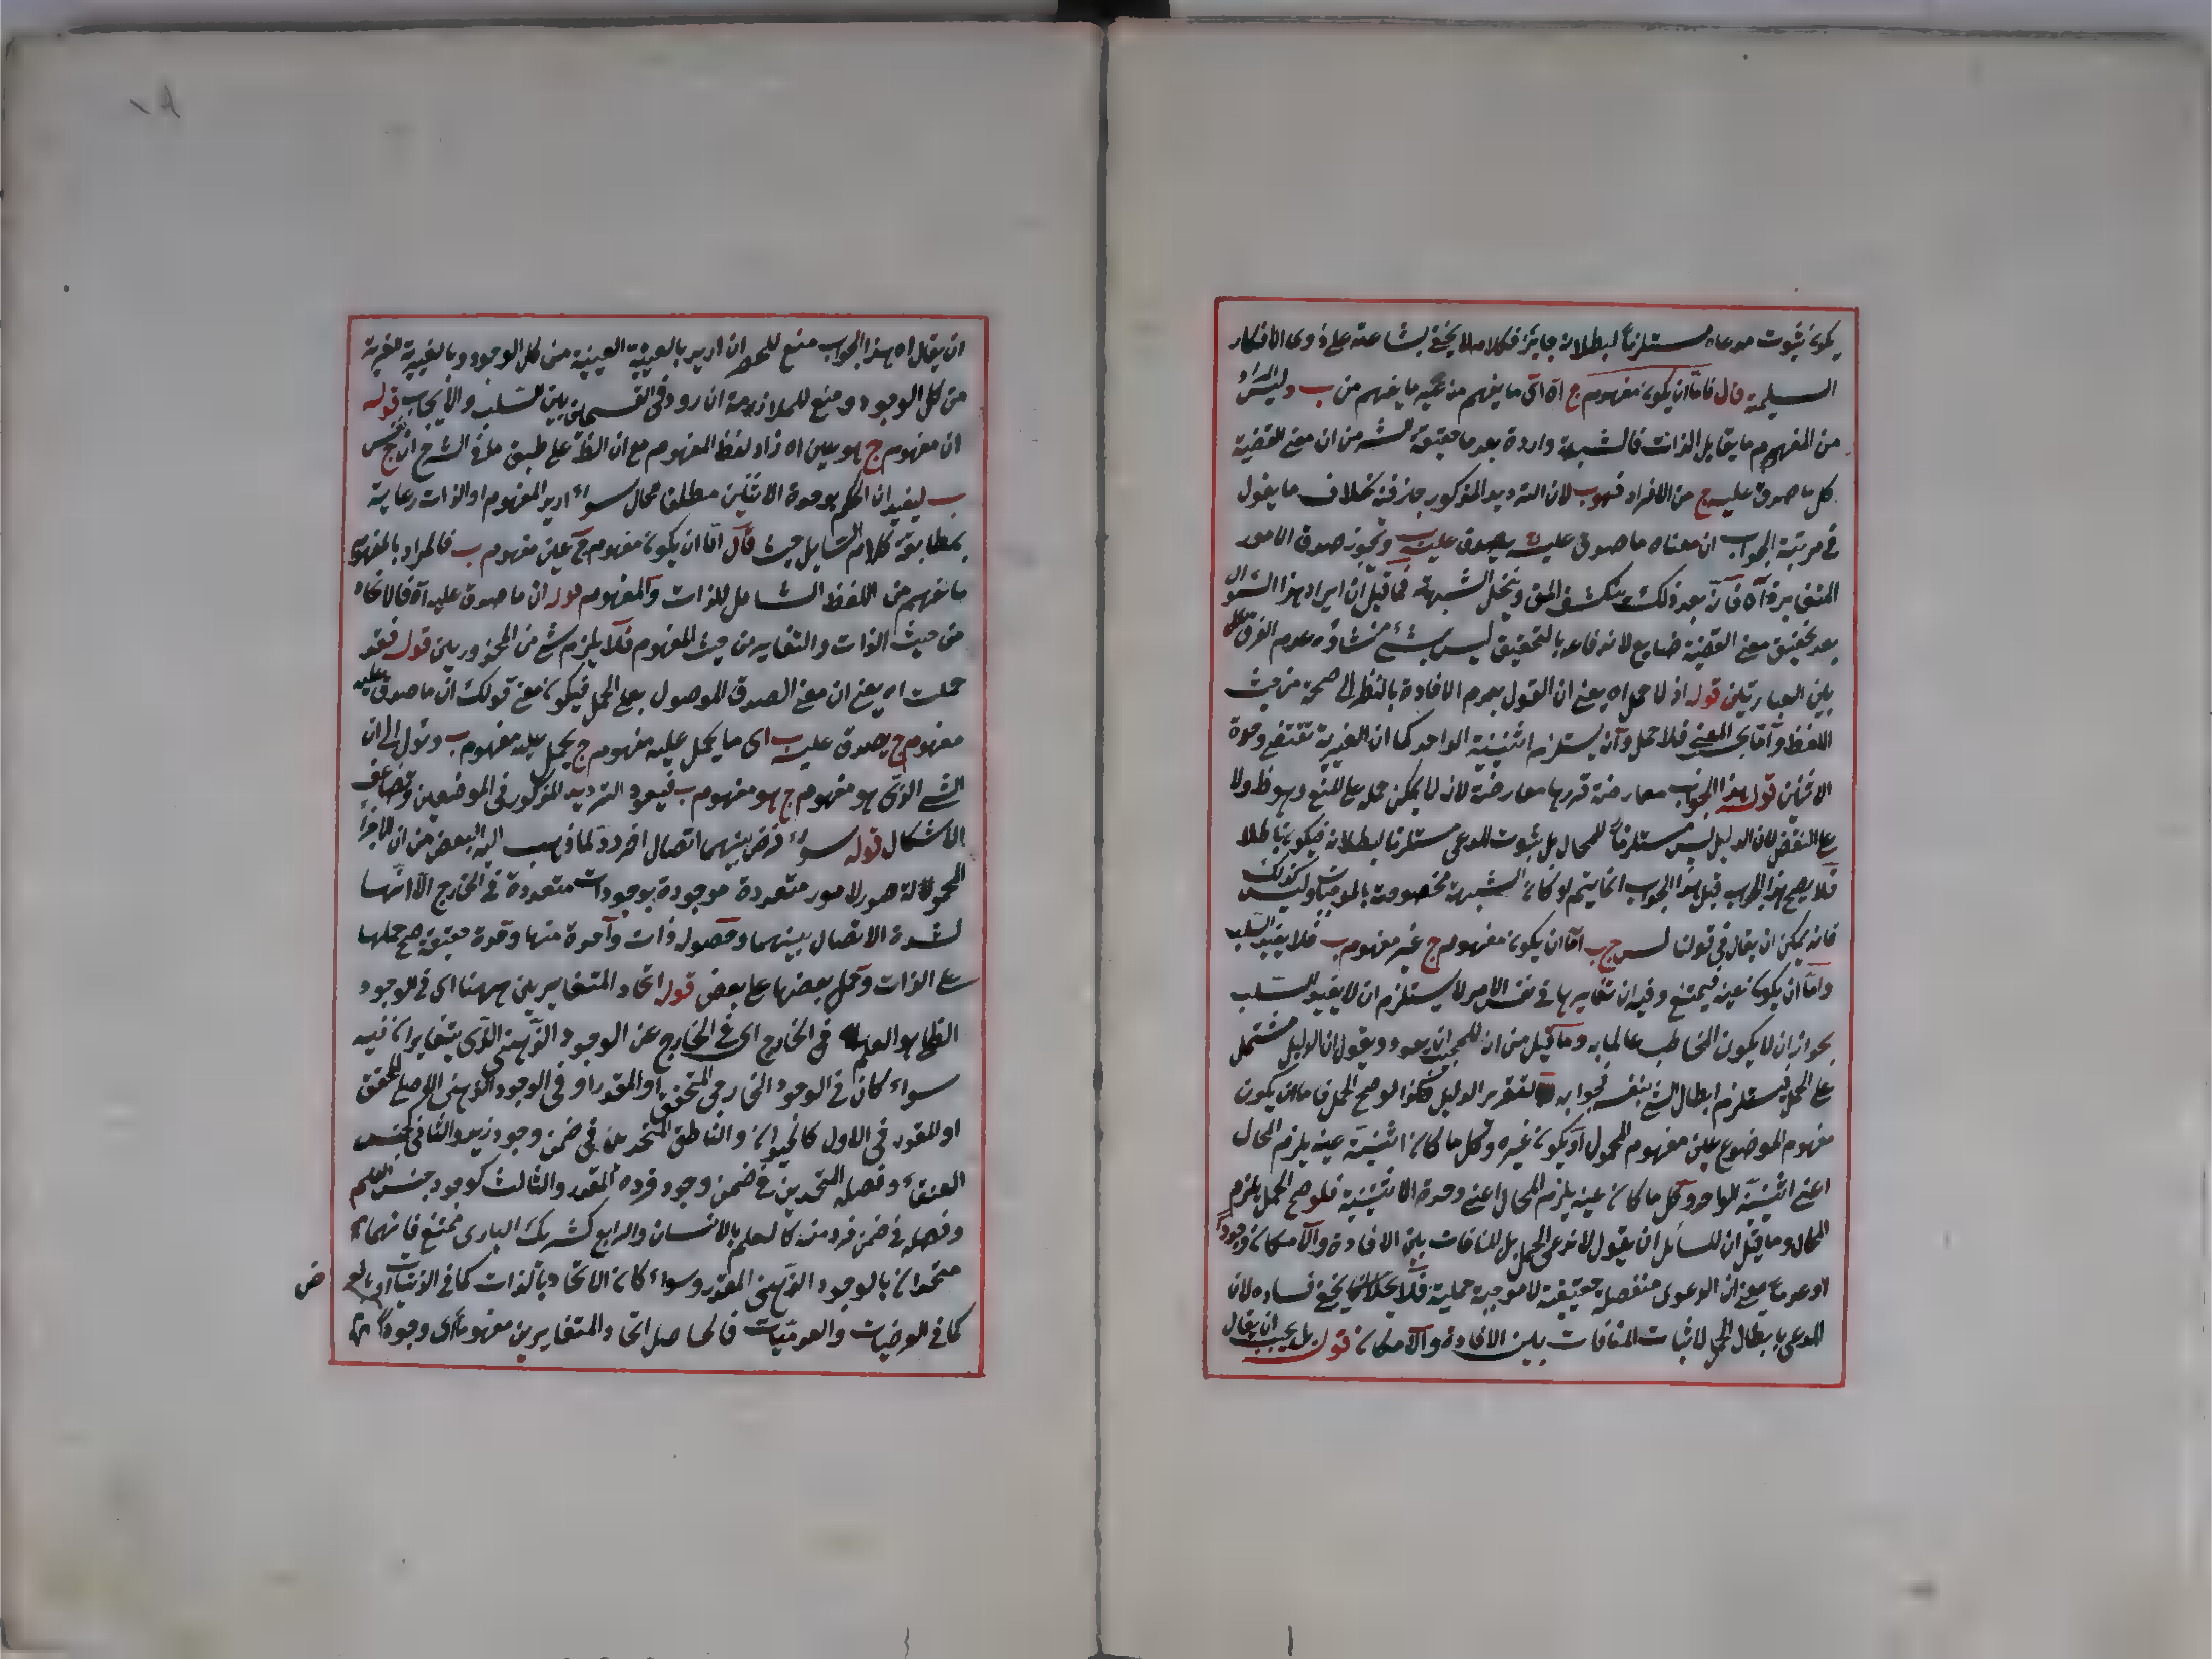 يكون ثبوت مدعاه مستلزما لبطلانه جايز فكلامه لا يخفى بشاعته على ذوى الافكار
السليمة قال فاما ان يكون مفهوم ج اه اى ما يفهم من ج عين ما يفهم من ب وليس المراد
من المفهوم ما يقابل الذات فالشبهة واردة بعد ما حققه الش من ان معنى القضية
كل ما صدق عليه ج من الافراد فهو ب لان الترديد المذكور جار فيه بخلاف ما يقول
فى مرتبة الجواب ان معناه ما صدق عليه يصدق عليه ب ويجوز صدق الامور
المتغايرة آه فانه بعد ذلك ينكشف المق وينحل الشبهة فما قيل ان ايراد هذا السؤال
بعد تحقيق معنى القضية ضايع لاندفاعه بالتحقيق ليس بشئ منشاؤه عدم الفرق
بين العبارتين قوله اذ لا حمل اه يعنى ان القول بعدم الافادة بالنظر الى صحة من حيث
اللفظ واما بحسب المعنى فلا حمل وانه يستلزم اثنينية الواحد كما ان الغيرية تقتضى وحدة
الاثنين قوله هذا الجواب معارضة قدرها معارضة لانه لا يمكن حمله على المنع وهو ظ ولا
على النقض لان الدليل ليس مستلزما للمحال بل ثبوت المدعى مستلزما لبطلانه فيكون باطلا
فلا يصح هذا الجواب قيل هذا الجواب انما يتم لو كان الشبهة مخصوصة بالموجبات وليس كذلك
فانه يمكن ان يقال فى قولنا ليس ج ب اما ان يكون مفهوم ج غير مفهوم ب فلا يفيد السلب
واما ان يكون عينه فيمتنع وفيه ان تغايرهما فى نفس الامر لا يستلزم ان لا يفيد السلب
لجواز ان لا يكون المخاطب عالما به وما قيل من ان للمجيب ان يعود ويقول ان الدليل مشتمل
على الحمل فيستلزم ابطال الشئ بنفسه فجوابه لتقرير الدليل هكذا لو صح الحمل فاما ان يكون
مفهوم الموضوع عين مفهوم المحمول او يكون غيره وكل ما كان اثنينية عينه يلزم المحال
اعنى اثنينية الواحد وكل ما كان عينه يلزم المحال اعنى وحدة الاثنينية فلو صح الحمل يلزم
المحال وما قيل ان للسائل ان يقول لا ندعى الحمل بل المنافات بين الافادة والامكان وجودا
او عدما بمعنى ان الدعوى منفصلة حقيقية لا موجبة حملية فلا يخفى فساده لان
المدعى بابطال الحمل لاثبات المنافات بين الافادة والامكان قوله بل يجب ان يقال
ان يقال اه هذا الجواب منع للحصر ان اريد بالعينية العينية من كل الوجوه وبالغيرية الغيرية
من كل الوجوه ومنع للملازمة ان رود فى القسمان بين السلب والايجاب قوله
ان مفهوم ج هو عين اه زاد لفظ المفهوم مع ان الظ على طبق ما فى الشرح ان ج ليس
ب ليفيد ان الحكم بوحدة الاثنين مطلقا محال سواء اريد المفهوم او الذات رعاية
بمطابقة كلام السايل حيث قال اما ان يكون مفهوم ج عين مفهوم ب فالمراد بالمفهوم
ما يفهم من اللفظ الشامل للذات والمفهوم قوله ان ما صدق عليه آه فالاتحاد
من حيث الذات والتغاير من حيث المفهوم فلا يلزم شئ من المحذورين قوله فقد
حملت اه يعنى ان معنى الصدق الموصول بعلى الحمل فيكون معنى قولك ان ما صدق عليه
مفهوم ج يصدق عليه ب اى ما يحمل عليه مفهوم ج يحمل عليه مفهوم ب ويؤل الى ان
الشئ الذى هو مفهوم ج هو مفهوم ب فيعود الترديد المذكور فى الموضعين وتضاعف
الاشكال قوله سواء فرض بينهما اتصال اخر دون لما ذهب اليه البعض من ان الاجزاء
المحمولة صور لامور متعددة موجودة بوجودات متعددة فى الخارج الا انها
لشدة الاتصال بينهما وحصول ذات واحدة منها وحدة حقيقة صح حملها
على الذات وحمل بعضها على بعض قوله اتحاد المتغايرين ههنا اى فى الوجود
الظلى هو العلم فى الخارج اى فى الخارج عن الوجود الذهنى الذى يتغايران فيه
سواء كان فى الوجود الخارجى المحقق او المقدر او فى الوجود الذهنى الاصلى المحقق
او المقدر فى الاول كالحيوان والناطق المتحدين فى ضمن وجود زيد والثانى كجنس
العنقاء وفصله المتحدين فى ضمن وجود فرده المقدر والثالث كوجود جنس العلم
وفصله فى ضمن فرد منه كالعلم بالانسان والرابع كشريك البارى ممتنع فانهما
متحدان بالوجود الذهنى المقدر وسواء كان الاتحاد بالذات كما فى الذاتيات او بالعرض
كما فى العرضيات والعدميات فالحاصل اتحاد المتغايرين مفهوما اى وجودا